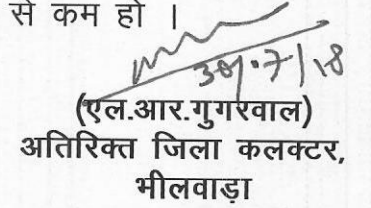 से कम हो ।
30/.7/18
(एल.आर.गुगरवाल)
अतिरिक्त जिला कलक्टर,
भीलवाड़ा